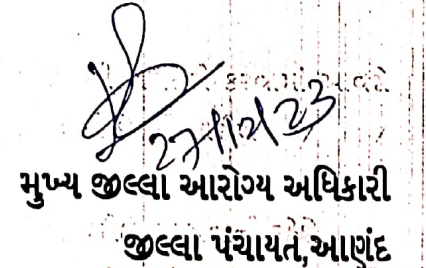 27/12/23
મુખ્ય જીલ્લા આરોગ્ય અધિકારી
જીલ્લા પંચાયત,આણંદ